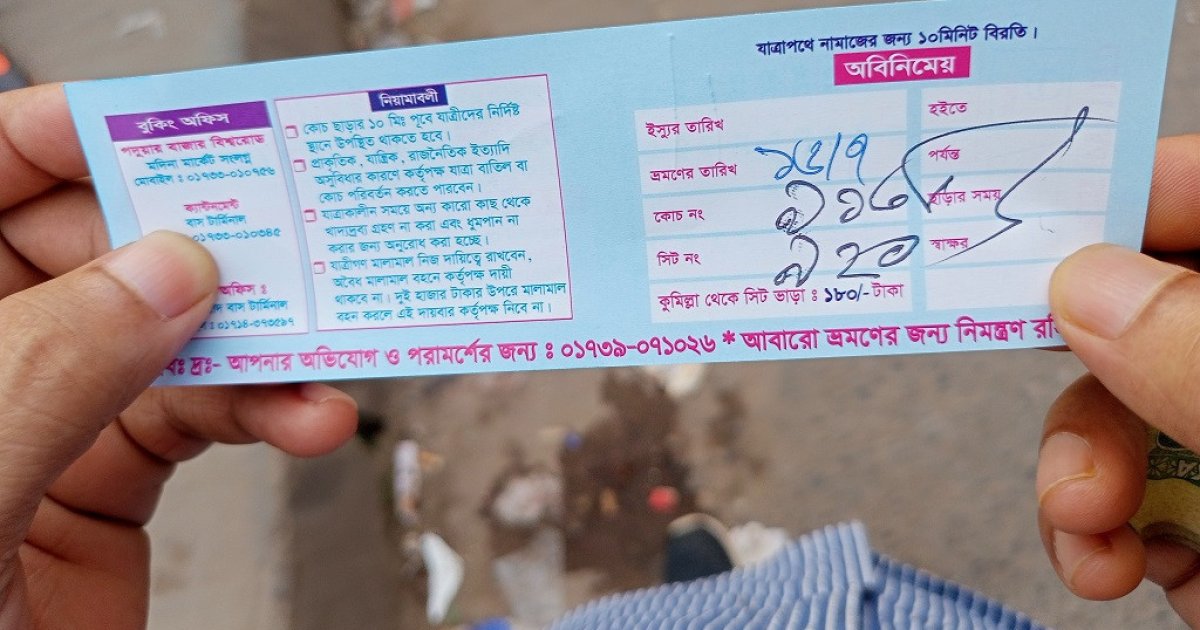 যাত্রাপথে নামাজের জন্য ১০মিনিট বিরতি।
অবিনিমেয়
বুকিং অফিস
পদুয়ার বাজার বিশ্বরোড
মদিনা মার্কেট সংলগ্ন
মোবাইল : ০১৭৩৩-০১০৭৫৬
ক্যান্টনমেন্ট
বাস টার্মিনাল
০১৭৩৩-০১০৩৪৫
অফিস :
বাস টার্মিনাল
: ০১৭১৪-৩৭৩৫৯৭
নিয়মাবলী
কোচ ছাড়ার ১০ মিঃ পূবে যাত্রীদের নির্দিষ্ট
স্থানে উপস্থিত থাকতে হবে।
প্রাকৃতিক, যান্ত্রিক, রাজনৈতিক ইত্যাদি
অসুবিধার কারণে কর্তৃপক্ষ যাত্রা বাতিল বা
কোচ পরিবর্তন করতে পারবেন।
যাত্রাকালীন সময়ে অন্য কারো কাছ থেকে
খাদ্যদ্রব্য গ্রহণ না করা এবং ধুমপান না
করার জন্য অনুরোধ করা হচ্ছে।
যাত্রীগণ মালামাল নিজ দায়িত্বে রাখবেন,
অবৈধ মালামাল বহনে কর্তৃপক্ষ দায়ী
থাকবে না। দুই হাজার টাকার উপরে মালামাল
বহন করলে এই দায়বার কর্তৃপক্ষ নিবে না।
ইস্যুর তারিখ
ভ্রমণের তারিখ
কোচ নং
সিট নং
কুমিল্লা থেকে সিট ভাড়া : ১৮০/- টাকা
হইতে
পর্যন্ত
ছাড়ার সময়
স্বাক্ষর
দ্রঃ- আপনার অভিযোগ ও পরামর্শের জন্য : ০১৭৩৯-০৭১০২৬ * আবারো ভ্রমণের জন্য নিমন্ত্রণ